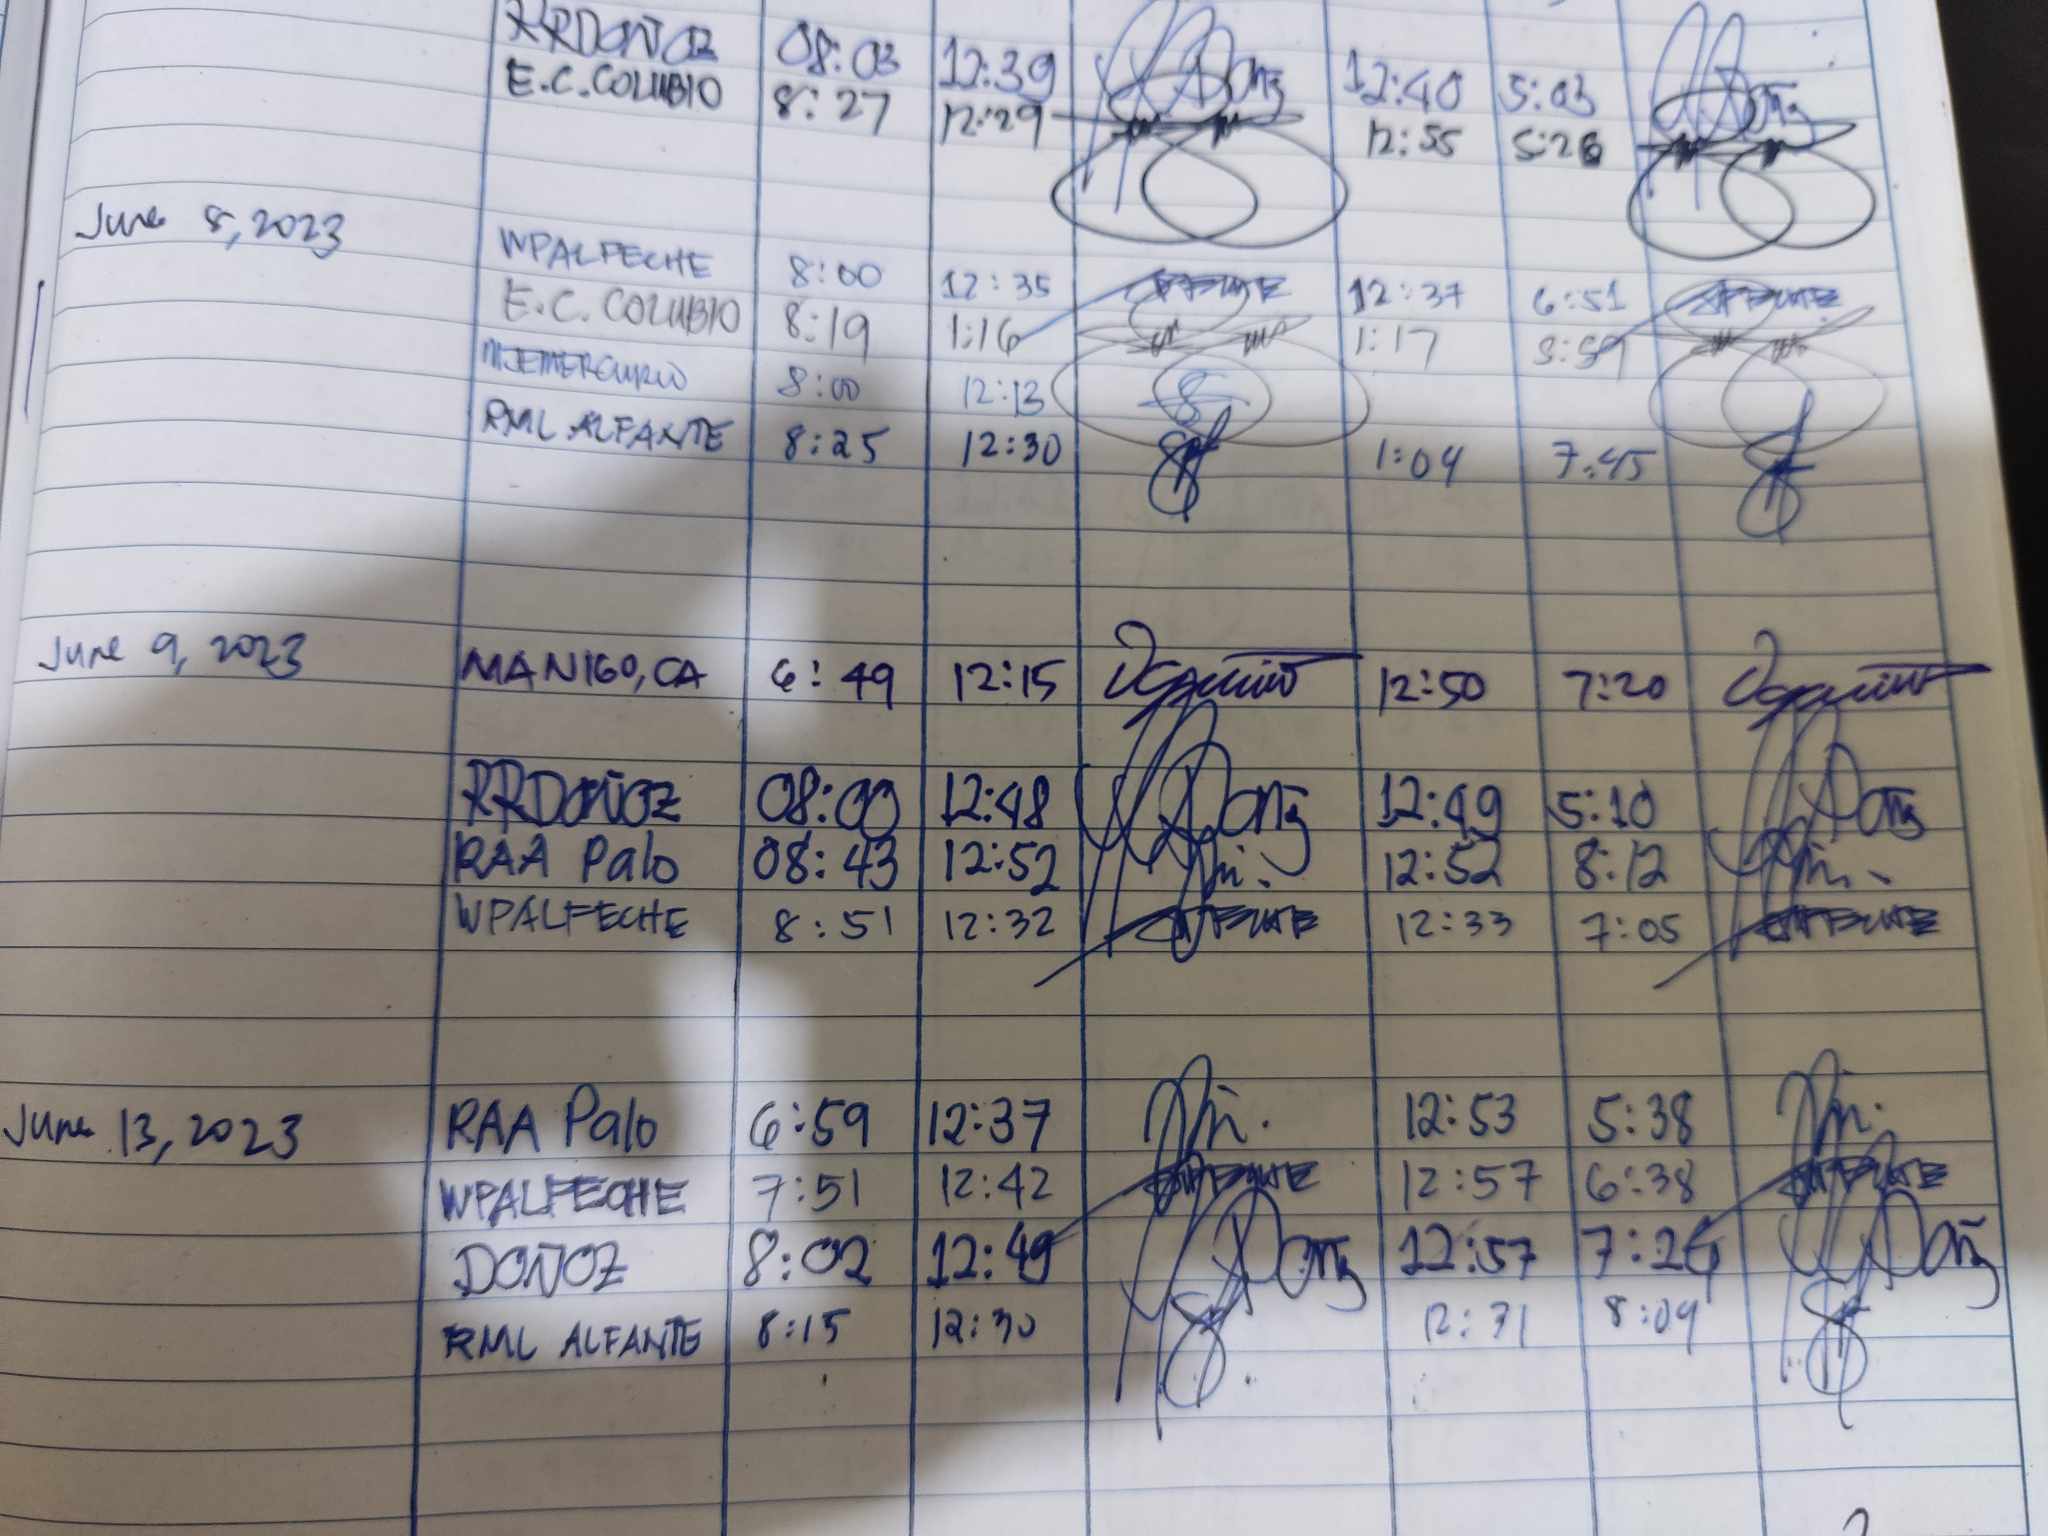 RRDOÑOZ 08:03 12:39 12:40 5:03
E.C. COLUBIO 8:27 12:29 12:55 5:28
June 8, 2023
WPALFECHE 8:00 12:35 12:37 6:51
E.C. COLUBIO 8:19 1:16 1:17
8:00 12:13
RML ALFANTE 8:25 12:30 1:04 7:45
June 9, 2023 MANIGO, CA 6:49 12:15 12:50 7:20
RRDOÑOZ 08:00 12:48 12:49 5:10
RAA Palo 08:43 12:52 12:52 8:12
WPALFECHE 8:51 12:32 12:33 7:05
June 13, 2023 RAA Palo 6:59 12:37 12:53 5:38
WPALFECHE 7:51 12:42 12:57 6:38
DOÑOZ 8:02 12:49 12:57
RML ALFANTE 8:15 12:30 12:31 8:09